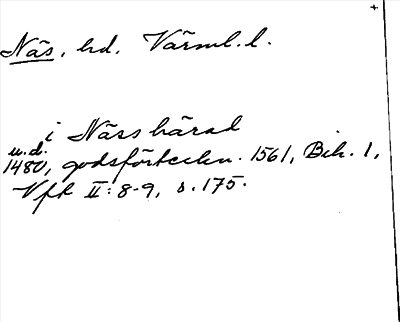 +
Näs, hd. Värml. l.
i Näss härad
u.d.
1480, godsförteckn. 1561, Bih. 1,
Vfk II: 8-9, s. 175.